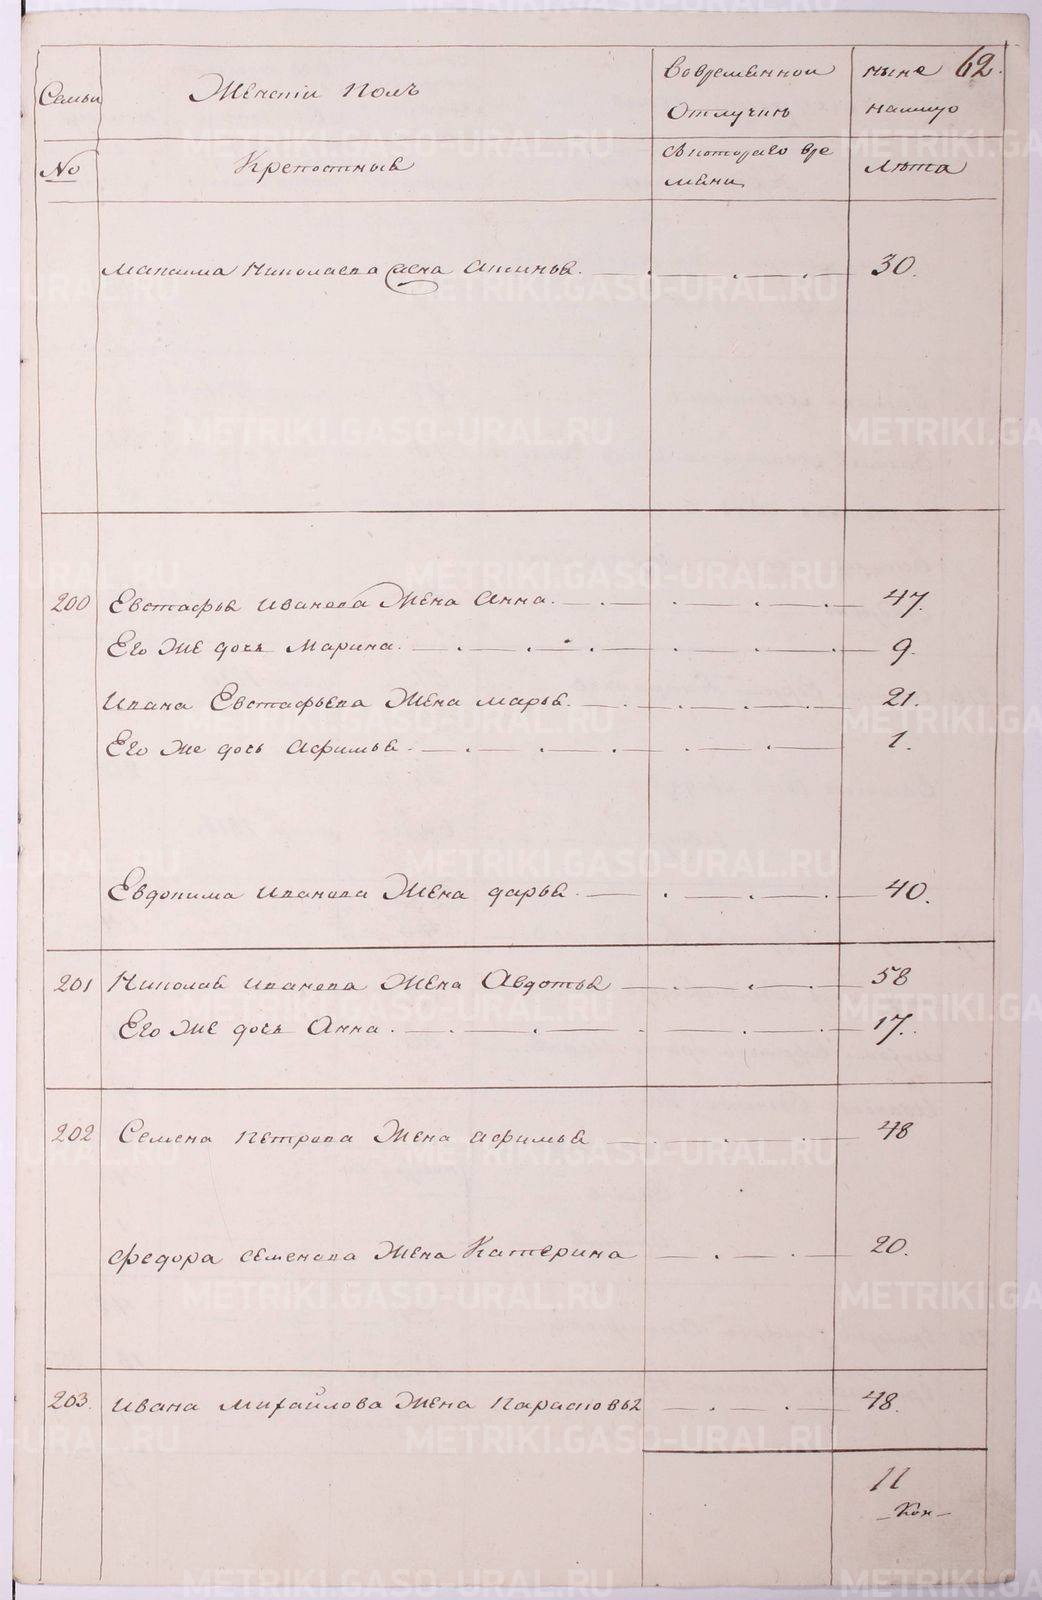 62.
Семьи
Женскiи полъ
Вовременной
ныне
Отлучинъ
налицо
No
Крепостные
Съкотораго вре
Лѣта
мени
Максима Николаева жена Аксинья. 30.
200 Евстафья Иванова Жена Анна. 47.
Его же дочь Марина. 9.
Ивана Евстафьева Жена марья. 21.
Его же дочь Афимья. 1.
Евдокима Иванова Жена дарья. 40.
201 Николая Иванова Жена Авдотья 58
Его же дочь Анна. 17.
202 Семена Петрова Жена афимья 48
Федора семенова Жена Катерина 20.
203. Ивана Михайлова Жена Парасковья 48.
11
METRIKI.GASO-URAL.RU